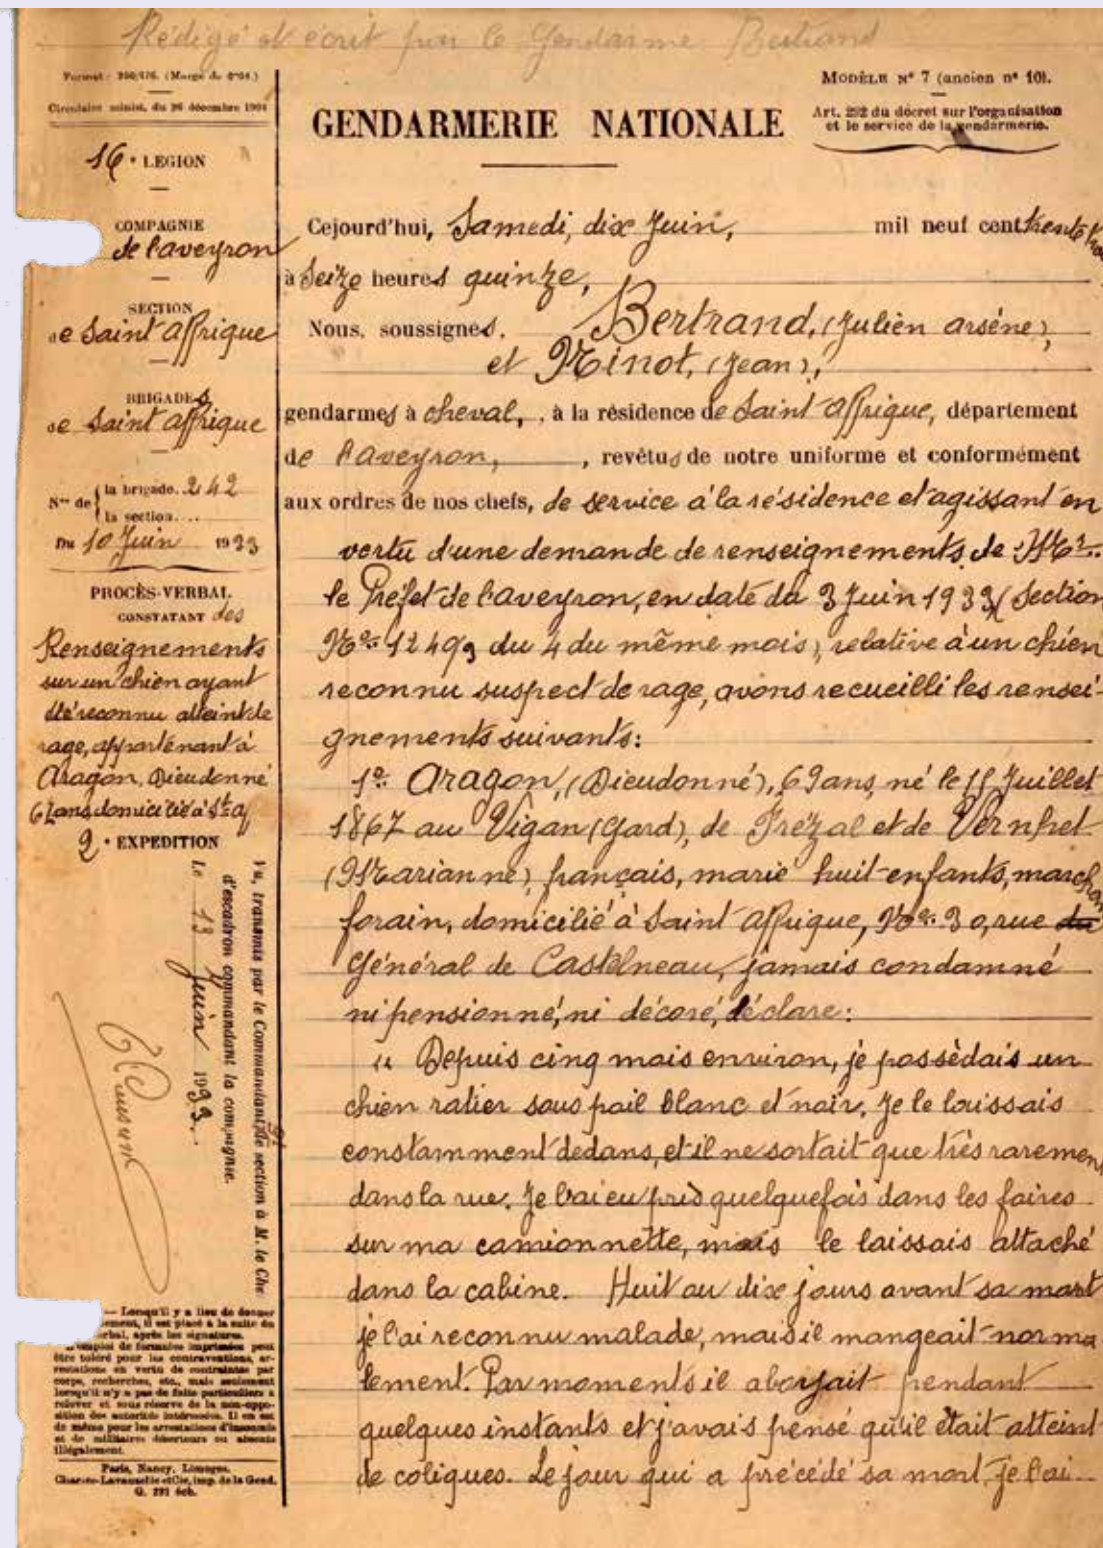 Rédigé et écrit par le Gendarme Bertrand
Format : 250/176. (Marge de 0m04.)
Circulaire minist. du 26 décembre 1901
16e LEGION
COMPAGNIE
de l'aveyron
SECTION
de Saint Affrique
BRIGADES
de Saint Affrique
Nos de
la brigade. 242
la section....
Du 10 Juin 1933
PROCÈS-VERBAL
CONSTATANT des
Renseignements
sur un chien ayant
été reconnu atteint de
rage, appartenant à
Aragon, Dieudonné
domicilié à St af
2e EXPEDITION
Vu, transmis par le Commandant de section à M. le Che
d'escadron commandant la compagnie.
Le 13 Juin 1933.
— Lorsqu'il y a lieu de donner
ement, il est placé à la suite du
erbal, après les signatures.
emploi de formules imprimées peut
être toléré pour les contraventions, ar-
restations en vertu de contraintes par
corps, recherches, etc., mais seulement
lorsqu'il n'y a pas de faits particuliers à
relever et sous réserve de la non-oppo-
sition des autorités intéressées. Il en est
de même pour les arrestations d'insoumis
et de militaires déserteurs ou absents
illégalement.
Paris, Nancy, Limoges.
Charles-Lavauzelle et Cie, imp. de la Gend.
G. 291 éch.
MODÈLE N° 7 (ancien n° 10).
Art. 292 du décret sur l'organisation
et le service de la gendarmerie.
GENDARMERIE NATIONALE
Cejourd'hui, Samedi, dix Juin, mil neuf cent trente
à Seize heures quinze,
Nous, soussignés. Bertrand, (Julien arsène),
et Minot, (Jean),
gendarmes à cheval, , à la résidence de Saint Affrique, département
de l'aveyron, , revêtus de notre uniforme et conformément
aux ordres de nos chefs, de service à la résidence et agissant en
vertu d'une demande de renseignements de Mr.
le Préfet de l'aveyron, en date du 3 Juin 1933 (Section
No. 1249 du 4 du même mois), relative à un chien
reconnu suspect de rage, avons recueilli les rensei-
gnements suivants:
1o. Aragon, (Dieudonné), ans, né le 15 Juillet
1867 au Vigan (Gard), de Frézal et de Vernhet
(Marianne), français, marié huit enfants, marchan
forain, domicilié à Saint Affrique, No. 30, rue du
Général de Castelneau, jamais condamné
ni pensionné, ni décoré, déclare:
" Depuis cinq mois environ, je possédais un
chien ratier sous poil blanc et noir. Je le laissais
constamment dedans, et il ne sortait que très raremen
dans la rue. Je l'ai eu pris quelquefois dans les foires
sur ma camionnette, mais le laissais attaché
dans la cabine. Huit ou dix jours avant sa mort
je l'ai reconnu malade, mais il mangeait norma
lement. Par moments il aboyait pendant
quelques instants et j'avais pensé qu'il était atteint
de coliques. Le jour qui a précédé sa mort, je l'ai